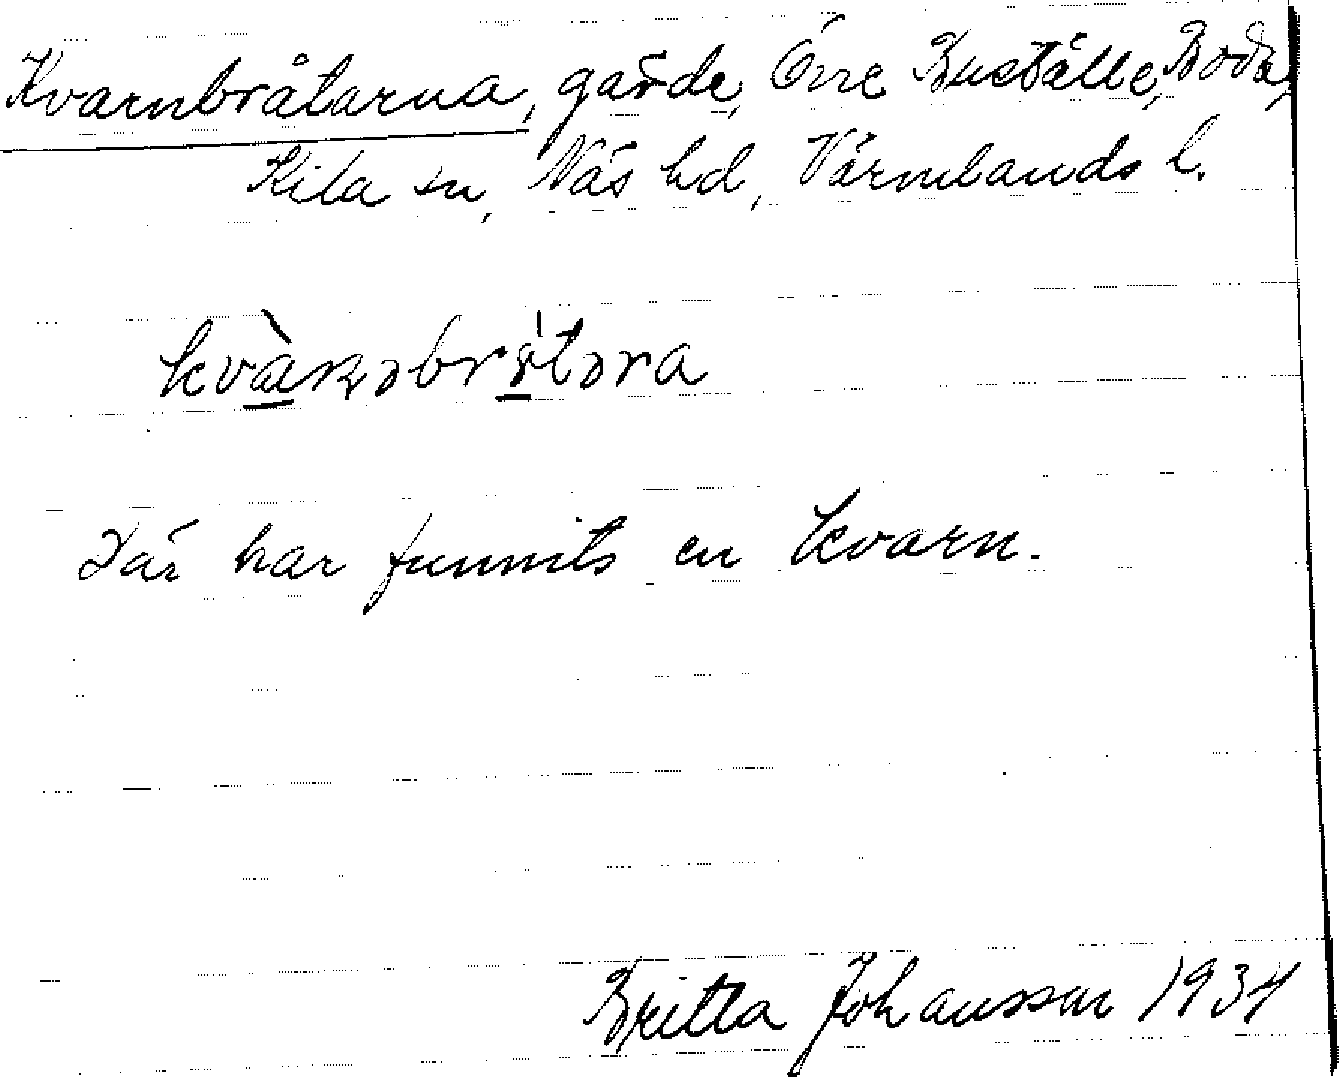 Kvarnbråtarna, gärde, Övre Buställe, Boda,
Kila sn, Näs hd, Värmlands l.
Där har funnits en kvarn.
Britta Johansson 1934